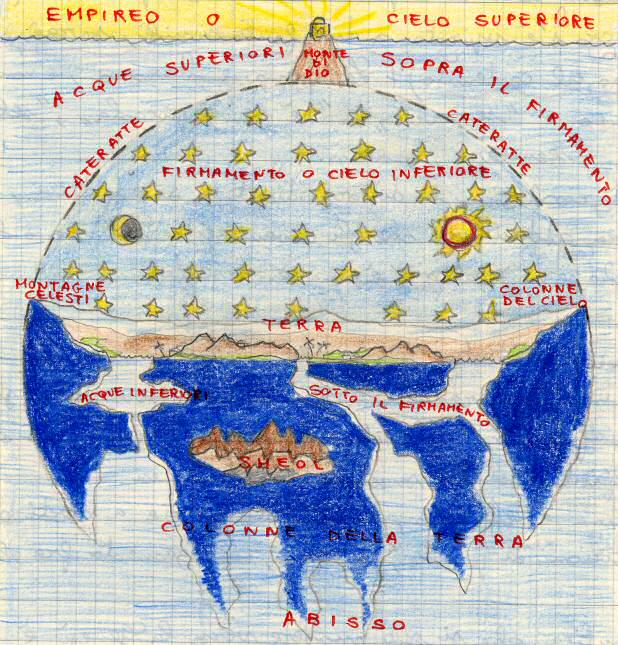 EMPIREO O CIELO SUPERIORE
ACQUE SUPERIORI
MONTE
DI
DIO
SOPRA IL FIRMAMENTO
CATERATTE
CATERATTE
FIRMAMENTO O CIELO INFERIORE
MONTAGNE
CELESTI
COLONNE
DEL CIELO
TERRA
ACQUE INFERIORI
SOTTO IL FIRMAMENTO
SHEOL
COLONNE DELLA TERRA
ABISSO